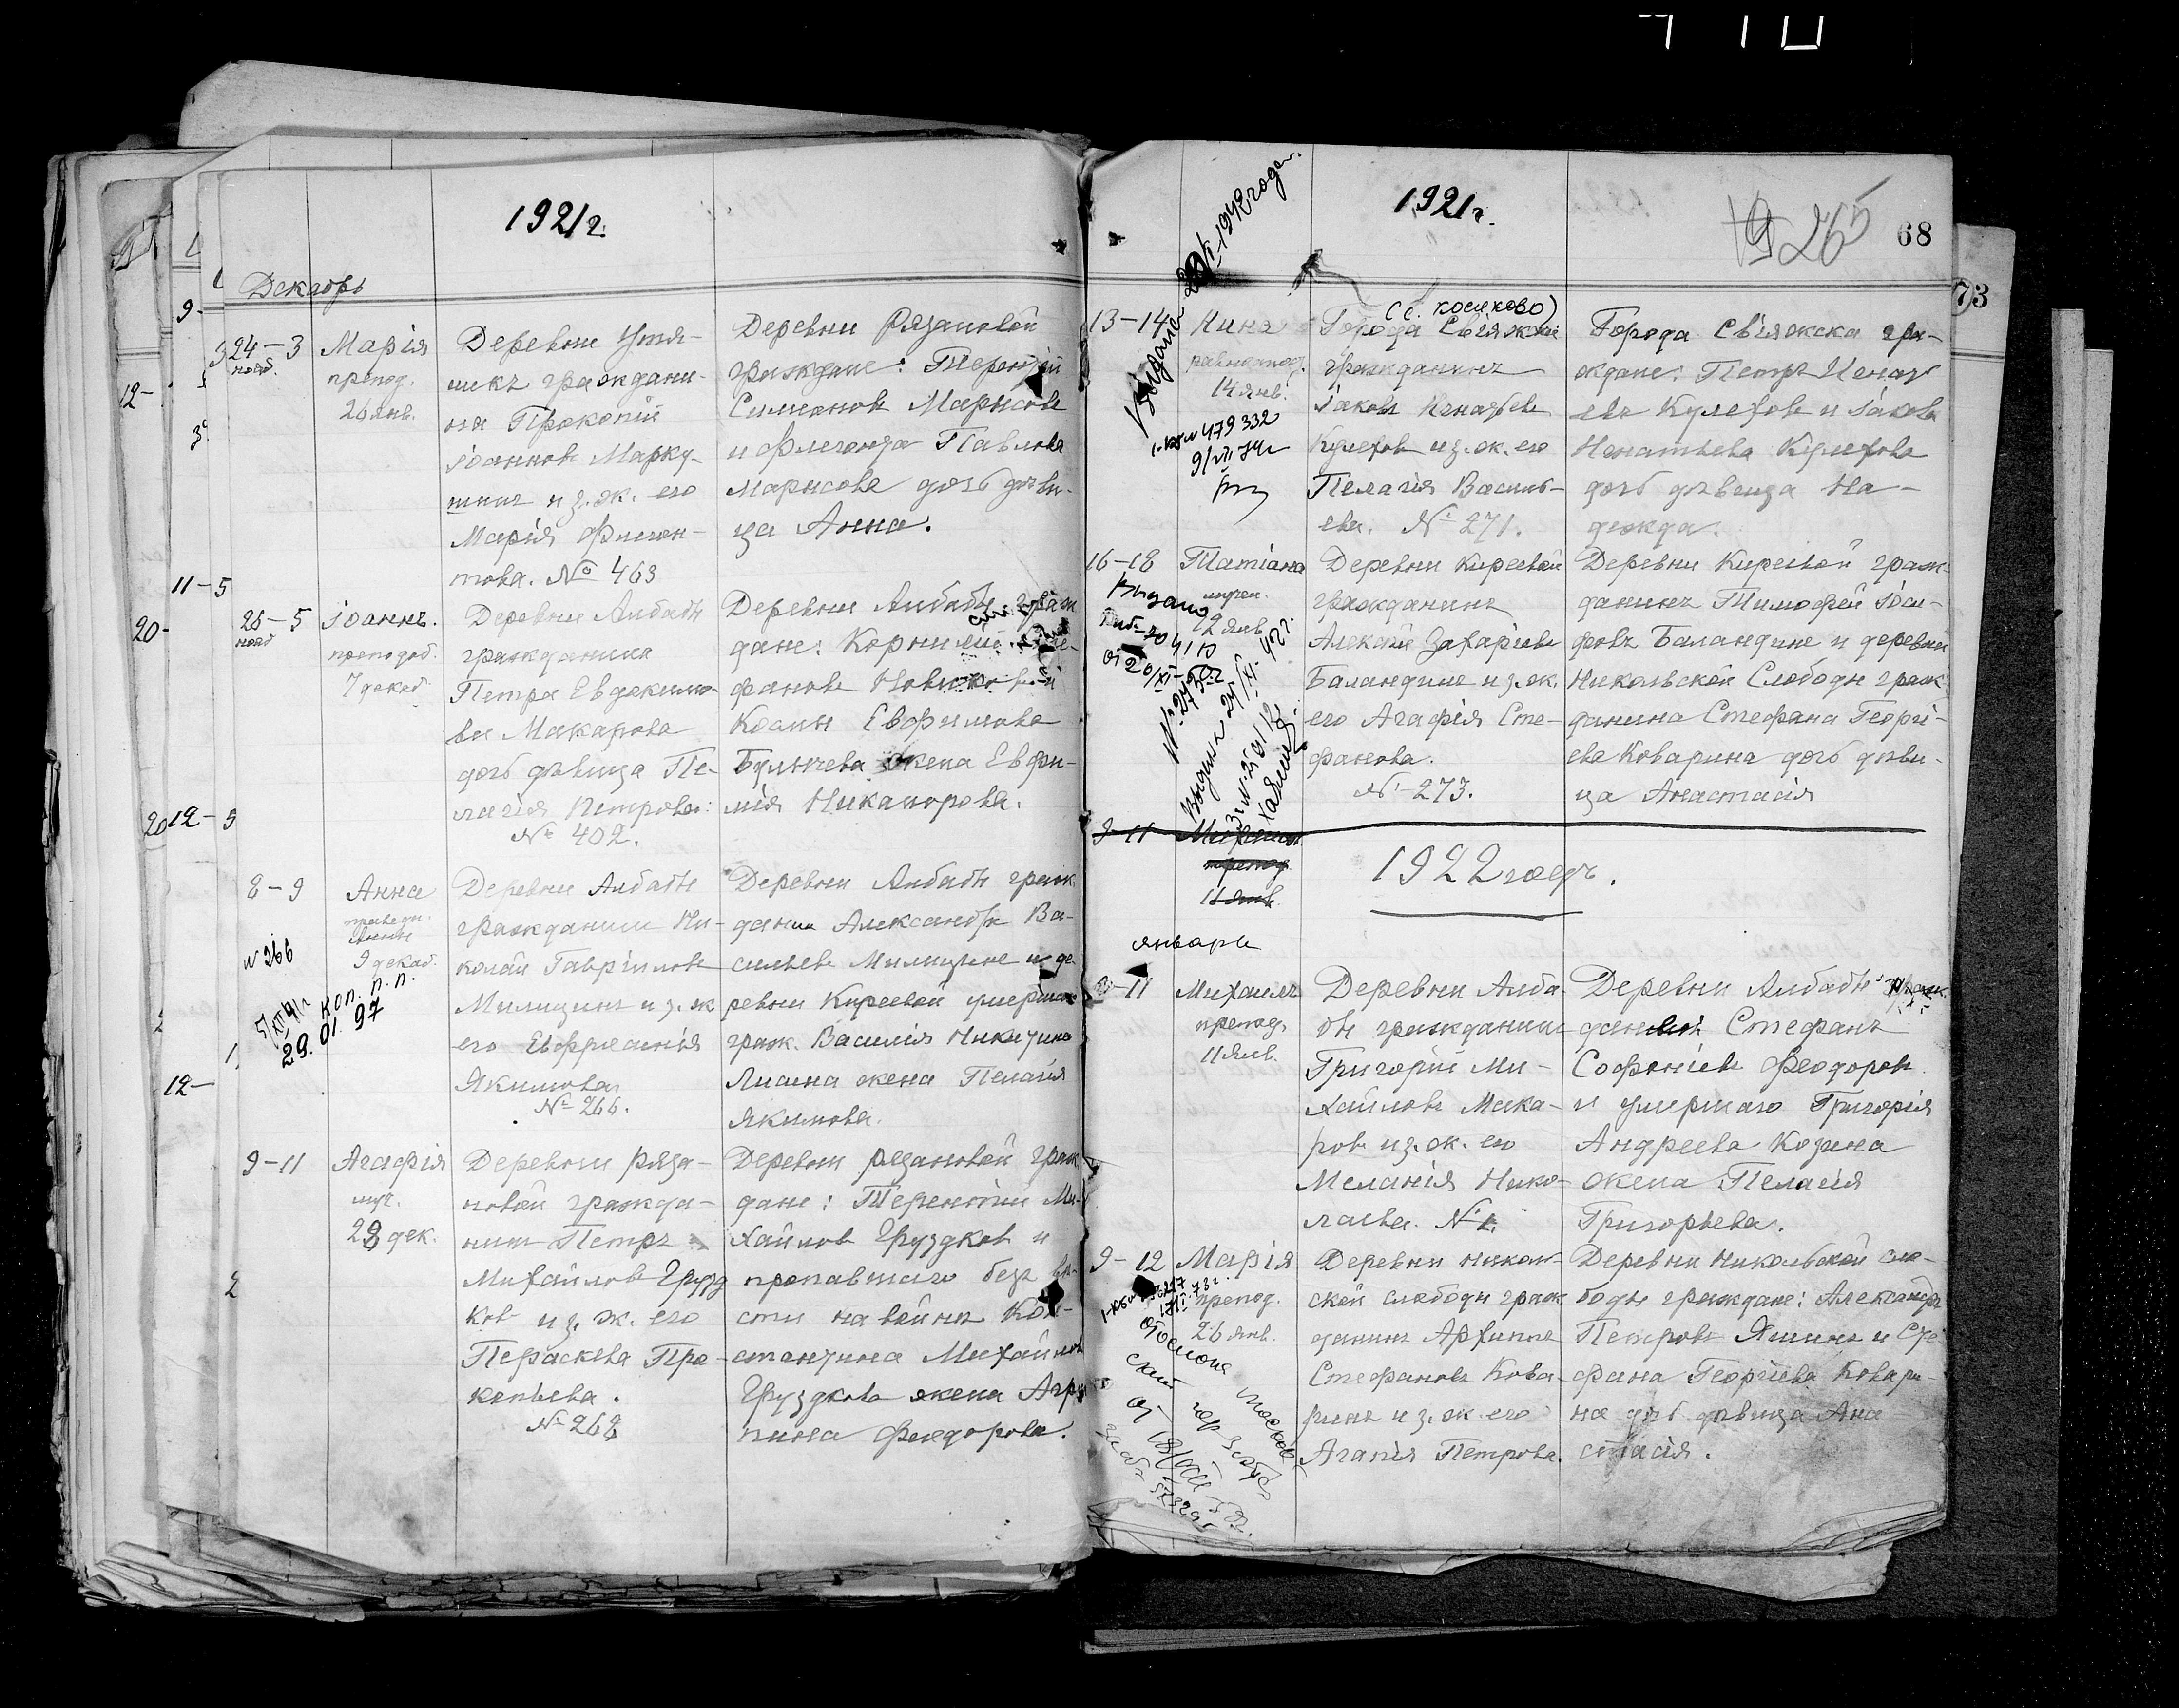 1921 г.
Декабрь
24–3
нояб.
Марія
препод.
26 янв.
Деревни Утя-
шикъ граждани-
на Прокопій
Іоанновъ Марку-
шинъ и з. ж. его
Марія Флегон-
това. № 463
Деревни Рязановой
граждане: Терентій
Симеоновъ Марысовъ
и Флегонта Павлова
Марысова дочь дѣви-
ца Анна.
25–5
нояб
Іоаннъ.
преподоб.
7 декаб.
Деревни Албабы
гражданина
Петра Евдокимо-
ва Макарова
дочь дѣвица Пе-
лагія Петрова:
№ 402.
Деревни Албабы граж
дане: Корнилій
фановъ Новиковъ и
Космы Евфимова
Булычева жена Евфи-
мія Никанорова.
8–9
Анна
праведн.
Анны
9 декаб.
№ 266
29.01.97
коп. п.п.
Деревни Албабы
гражданинъ Ни-
колай Гавріиловъ
Милицинъ и з. ж
его Евфросинія
Якимова
№ 266.
Деревни Албабы граж
данин Александръ Ва-
сильевъ Милицинъ и де
ревни Киреевой умершаго
граж. Василія Никитина
жена Пелагія
Якимова.
9–11
Агафія
муч.
28 дек.
Деревни Ряза-
новой гражда-
нин Петръ
Михайловъ Грузд
ков и з. ж. его
Пераскева Про-
копьева.
№ 268
Деревни Рязановой граж
дане: Терентій Ми-
хайлов Груздков и
пропавшаго безъ вѣ-
сти на войнѣ Кон-
стантина Михайлов
Груздкова жена Агри
пина Феодорова.
1921 г.
265
68
73
13–14
Нина
равноапост.
14 янв.
Выдана
1942 года.
479332
(с. Косяково)
Города Свіяжска
гражданинъ
Іаковъ Игнатьевъ
Кулефов и з. ж. его
Пелагія Василь-
ева. № 271.
Города Свіяжска гра-
ждане: Петръ Игнат
евъ Кулефовъ и Іакова
Игнатьева Кулефова
дочь дѣвица На-
дежда.
16–18
Татіана
мучен.
12 янв.
Выдано
Деревни Киреевой
гражданинъ
Алексѣй Захаріевъ
Баландинъ и з. ж.
его Агафія Сте-
фанова.
№ 273.
Деревни Киреевой граж-
данинъ Тимофей Іоси-
фовъ Баландинъ и деревни
Никольской Слободы граж
данина Стефана Георгі-
ева Коварина дочь дѣви-
ца Анастасія
9–11
препод.
11 янв.
1922 годъ.
января
11
Михаилъ
препод.
11 янв.
Деревни Алба-
бы гражданин
Григорій Ми-
хайловъ Мака-
ров и з. ж. его
Меланія Нико-
лаева. № 1.
Деревни Албабы граж.
Стефанъ
Софоніевъ Феодоров
и умершаго Григорія
Андреева Козина
жена Пелагія
Григорьева.
9–12
Марія
препод.
26 янв.
Деревни Николь-
ской слободы граж
данинъ Архиппъ
Стефановъ Кова-
ринъ и з. ж. его
Агапія Петрова.
Деревни Никольской сло-
боды граждане: Александръ
Петровъ Яшинъ и Сте
фана Георгіева Ковари-
на дочь дѣвица Ана
стасія.